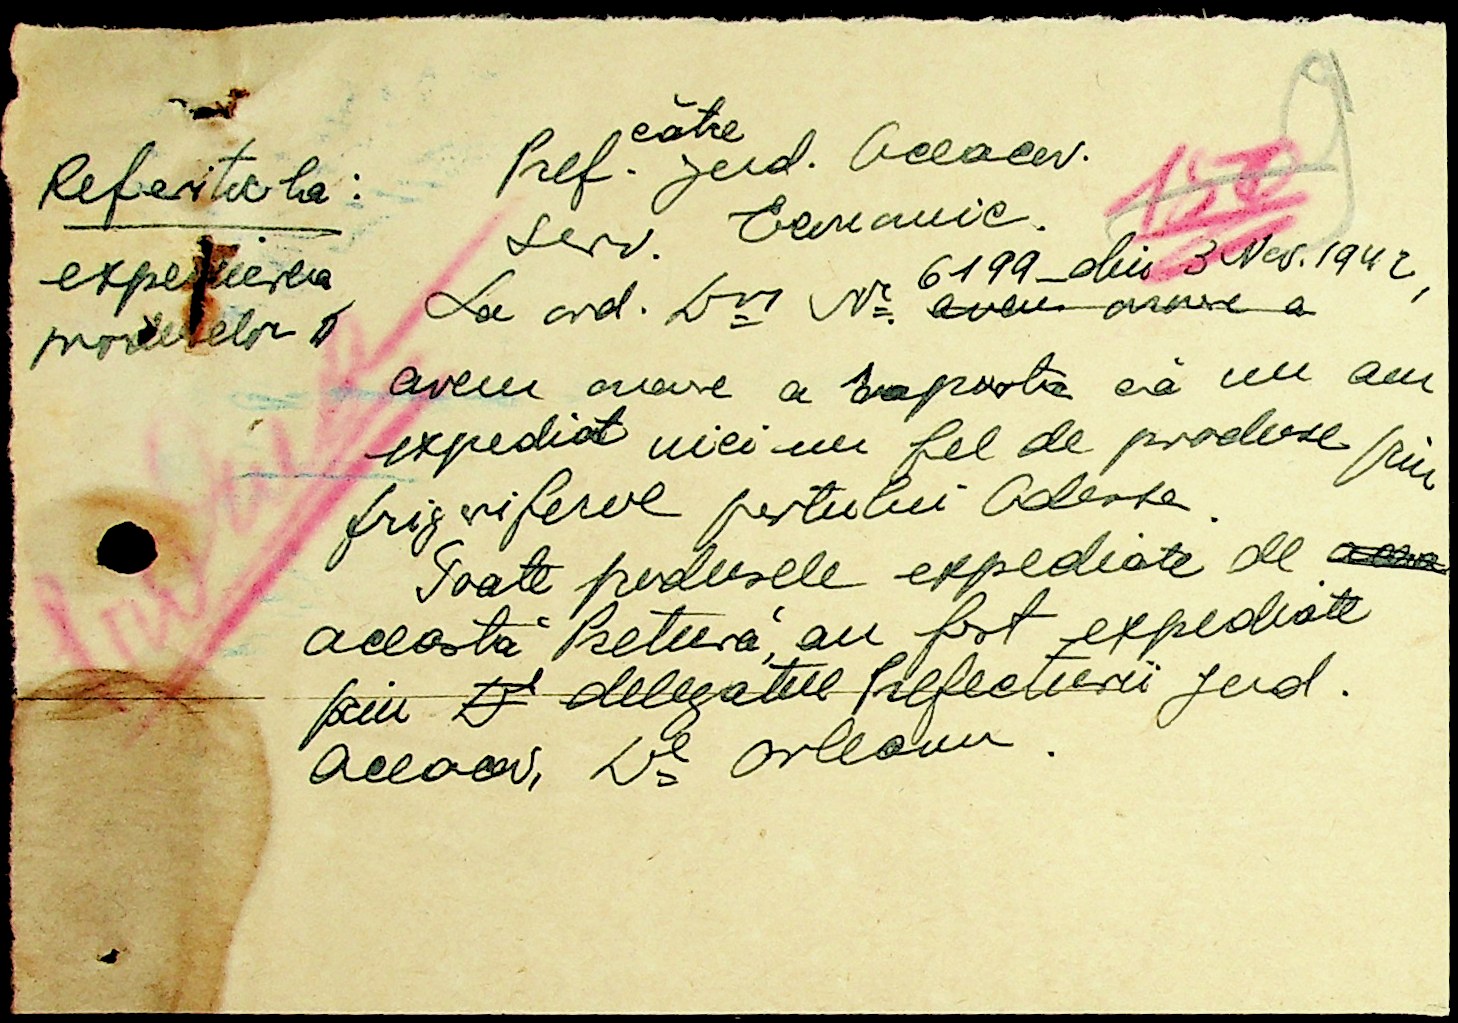 către
Pref. jud. Ceacov.
Serv. Economic.
Referitor la:
expedierea
produselor
La ord. Dvs Nr. 6199 din 3 Nov. 1942,
avem onoare a
avem onoare a raporta că nu am
expediat nici un fel de produse prin
frigoriferul portului Odessa.
Toate produsele expediate de
această Pretură, au fost expediate
prin Dl delegatul Prefecturii jud.
Dl Orleanu.